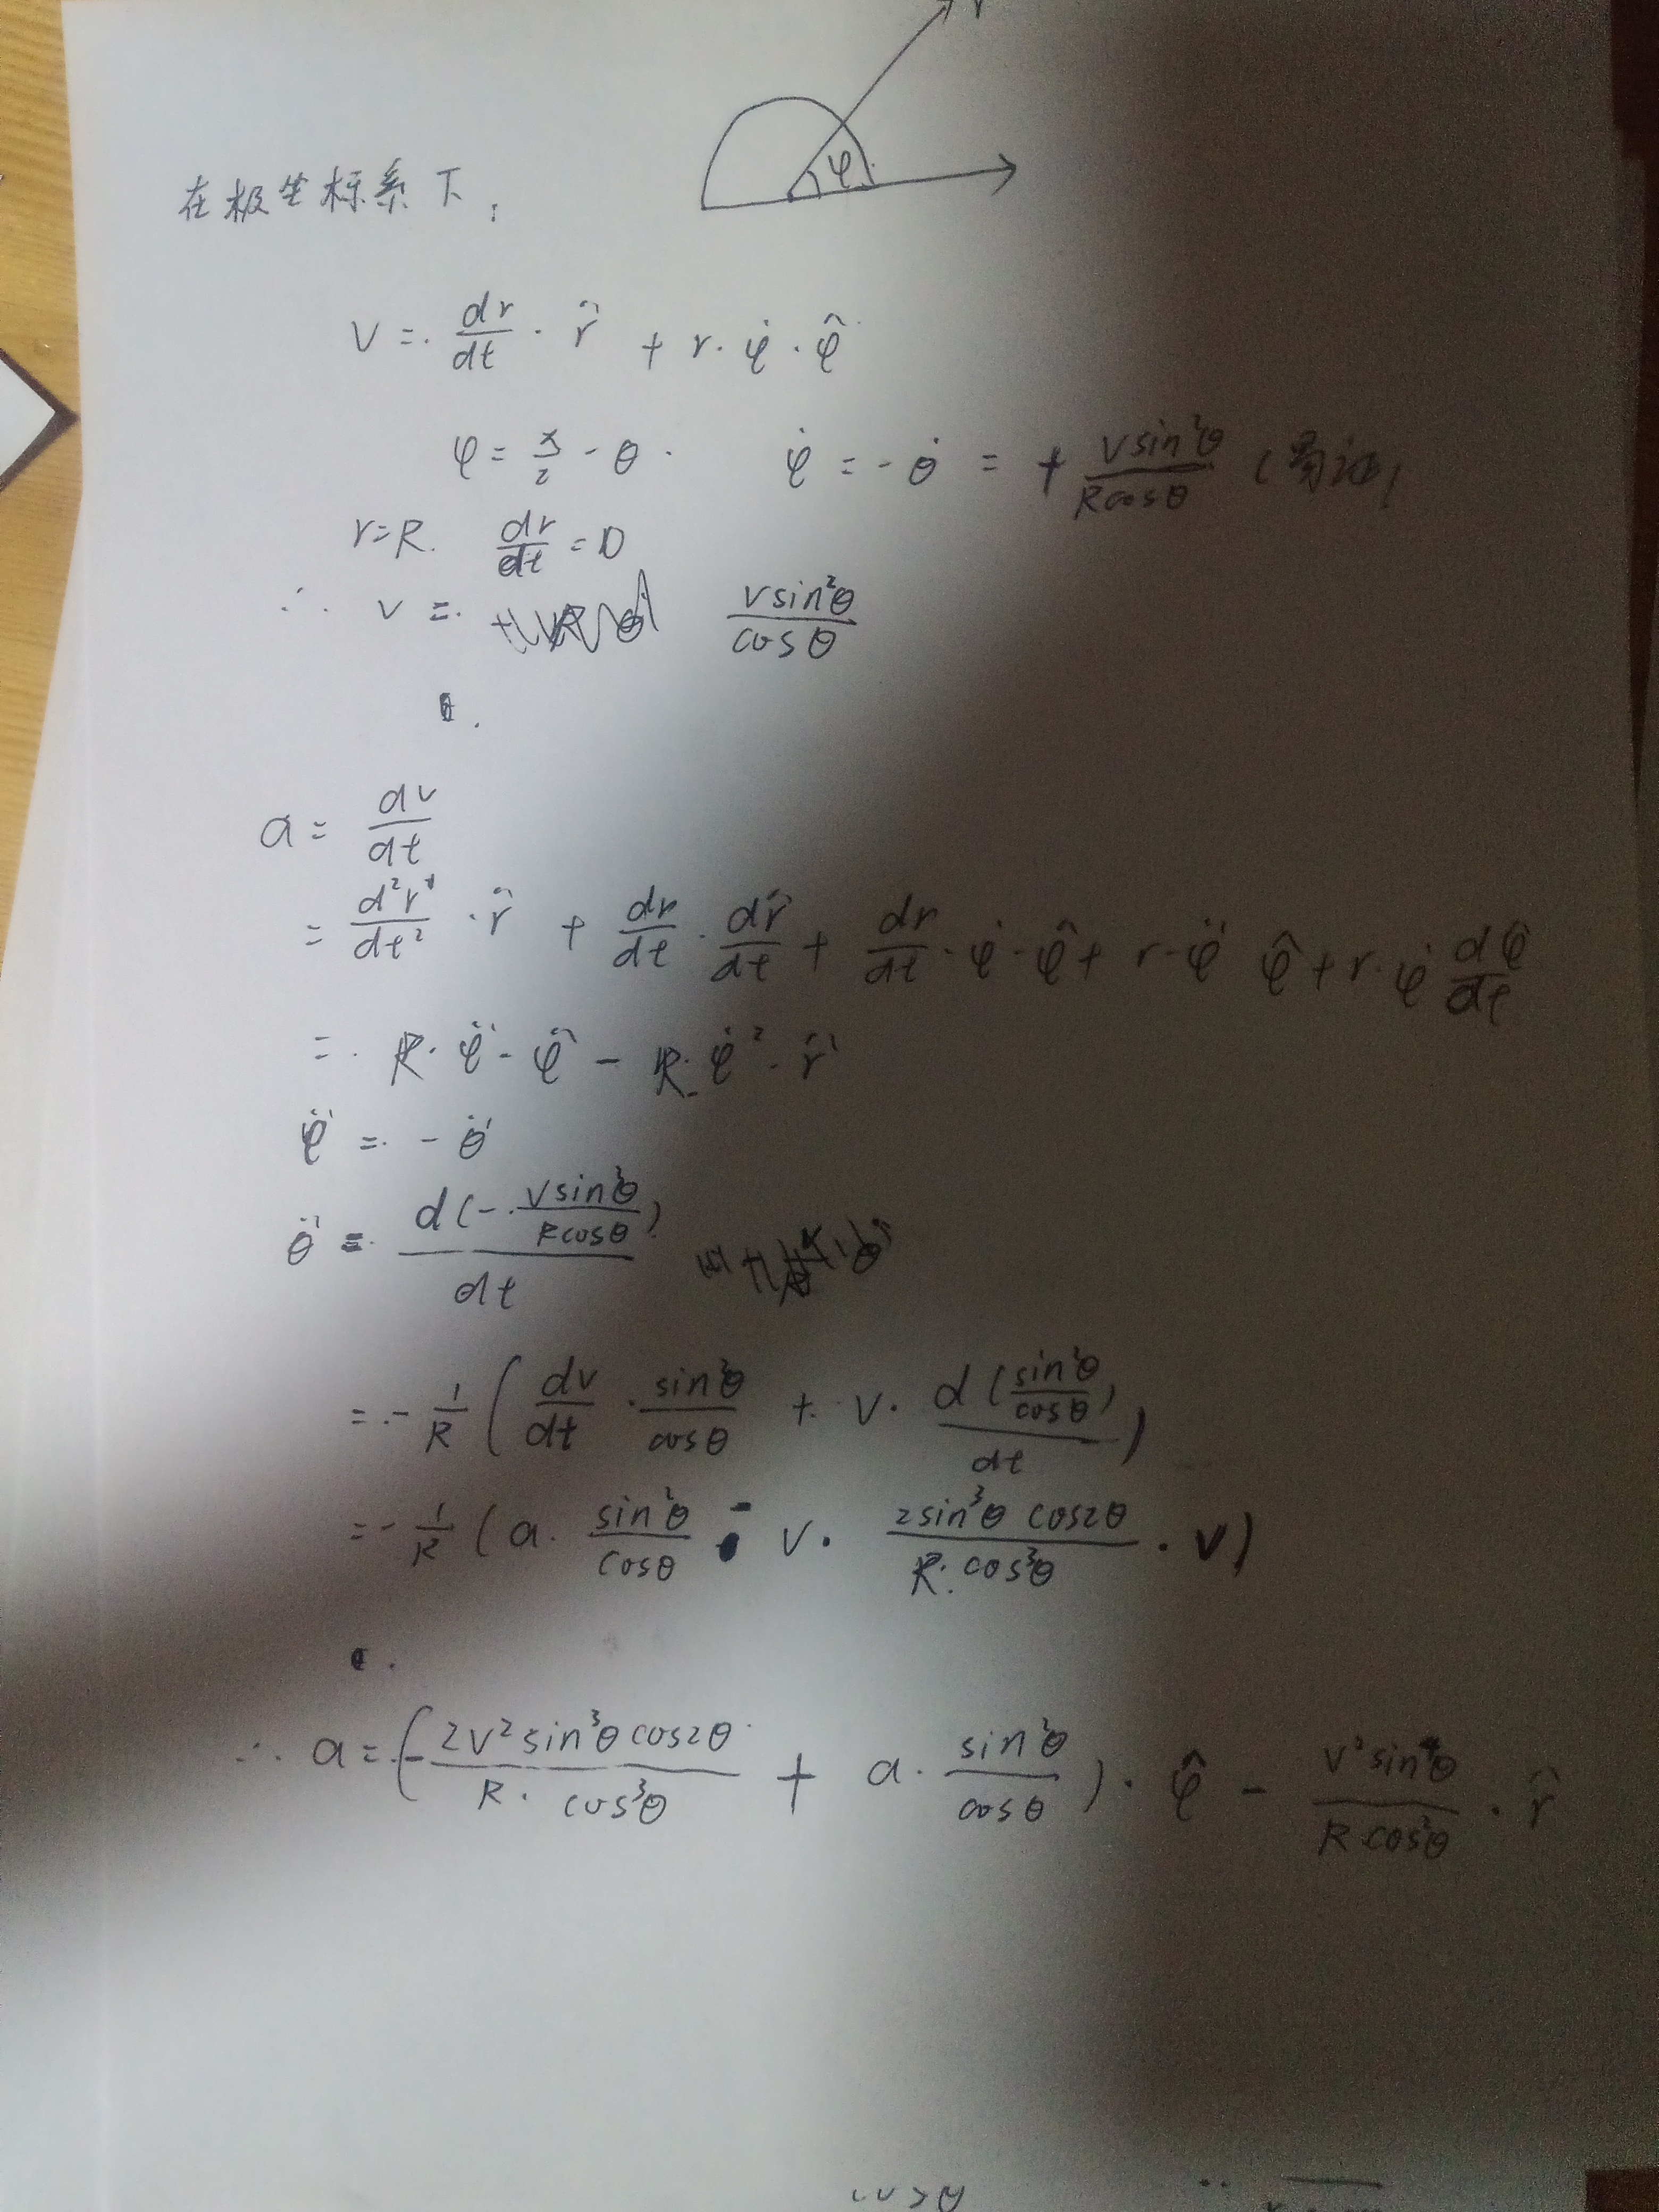 r
φ
在极坐标系下:
v = dr/dt · r̂ + r · φ̇ · φ̂
φ = π/2 - θ · φ̇ = - θ̇ = + v sin²θ / R cosθ (易证)
r = R. dr/dt = 0
∴ v = v sin²θ / cosθ
a = dv/dt
= d²r/dt² · r̂ + dr/dt · dr̂/dt + dr/dt · φ̇ · φ̂ + r · φ̈ φ̂ + r · φ̇ dφ̂/dt
= R · φ̈ · φ̂ - R · φ̇² · r̂
φ̈ = - θ̈
θ̈ = d(- v sin²θ / R cosθ) / dt
= - 1/R ( dv/dt · sin²θ/cosθ + v · d(sin²θ/cosθ)/dt )
= - 1/R ( a · sin²θ/cosθ - v · 2sin³θ cos2θ / R · cos³θ · v )
∴ a = (- 2v² sin³θ cos2θ / R · cos³θ + a · sin²θ/cosθ ) · φ̂ - v² sin⁴θ / R cos²θ · r̂
cosθ